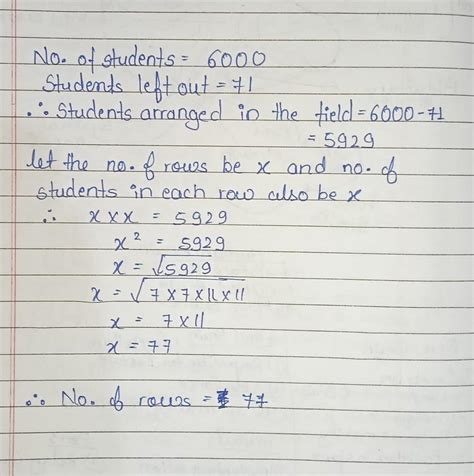 No. of students = 6000
Students left out = 71
∴ Students arranged in the field = 6000-71
= 5929
let the no. of rows be x and no. of
students in each row also be x
∴ x × x = 5929
x² = 5929
x = √5929
x = √7×7×11×11
x = 7×11
x = 77
∴ No. of rows = 77